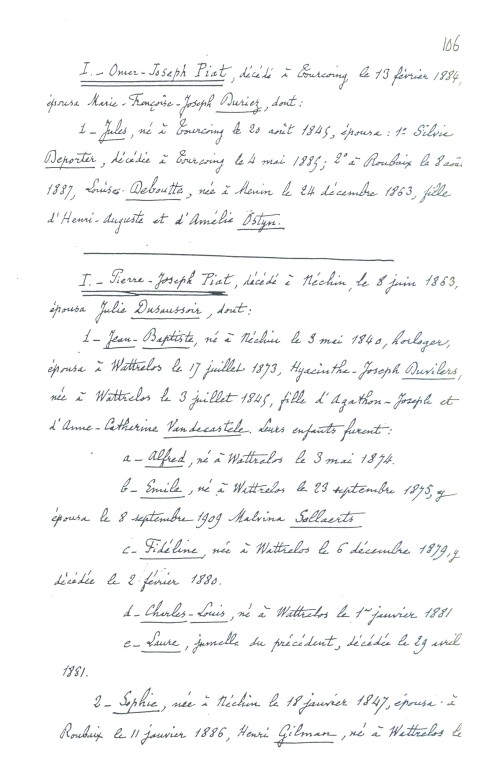 106
I. - Omer-Joseph Piat, décédé à Tourcoing le 13 février 1884,
épousa Marie-Françoise-Joseph Duriez, dont :
1 - Jules, né à Tourcoing le 20 août 1845, épousa : 1° Silvie
Deporter, décédée à Tourcoing le 4 mai 1885; 2° à Roubaix le 8 aoû
1887, Louise Deboutte, née à Menin le 24 décembre 1863, fille
d'Henri-Auguste et d'Amélie Ostyn.
I. - Pierre-Joseph Piat, décédé à Néchin, le 8 juin 1863,
épousa Julie Dusaussoir, dont :
1 - Jean-Baptiste, né à Néchin le 3 mei 1840, horloger,
épousa à Wattrelos le 17 juillet 1873, Hyacinthe-Joseph Duvilers,
née à Wattrelos le 3 juillet 1845, fille d'Agathon-Joseph et
d'Anne-Catherine Vandecastele. Leurs enfants furent :
a - Alfred, né à Wattrelos le 3 mai 1874.
b - Emile, né à Wattrelos le 23 septembre 1875, y
épousa le 8 septembre 1909 Malvina Sollaerts
c - Fidéline, née à Wattrelos le 6 décembre 1879, y
décédée le 2 février 1880.
d - Charles-Louis, né à Wattrelos le 1er janvier 1881
e - Laure, jumelle du précédent, décédée le 29 avril
1881.
2 - Sophie, née à Néchin le 18 janvier 1847, épousa à
Roubaix le 11 janvier 1886, Henri Gilman, né à Wattrelos le